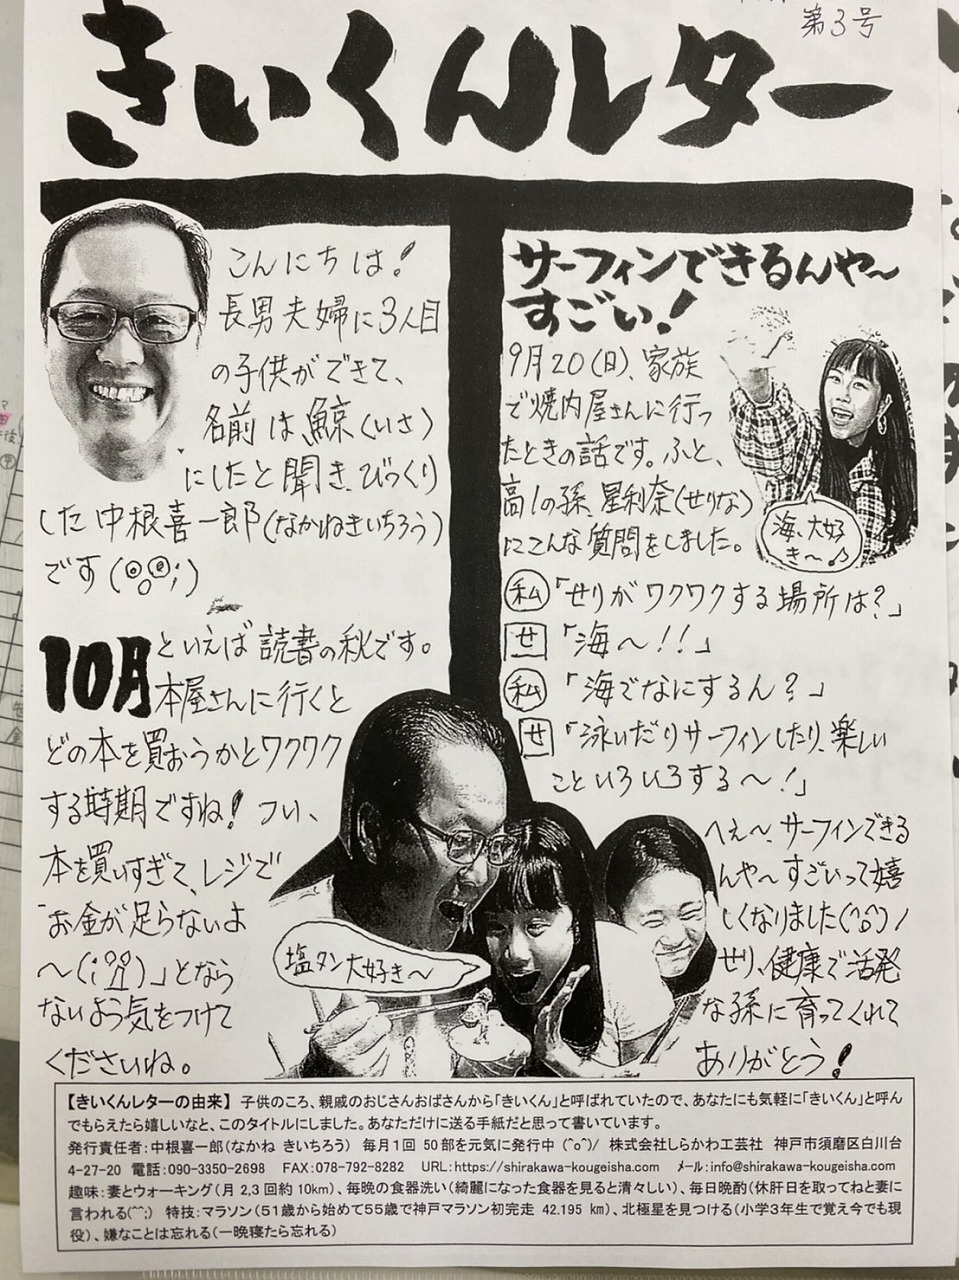 第3号
きいくんレター
こんにちは!
長男夫婦に3人目
の子供ができて、
名前は鯨(いさ)
にしたと聞き、びっくり
した中根喜一郎(なかねきいちろう)
です
10月といえば読書の秋です。
本屋さんに行くと
どの本を買おうかとワクワク
する時期ですね!つい、
本を買いすぎて、レジで
「お金が足らないよ
〜(;ↀ)」となら
ないよう気をつけて
くださいね。
サーフィンできるんや〜
すごい!
9月20(日)、家族
で焼肉屋さんに行っ
たときの話です。ふと、
高1の孫、星利奈(せりな)
にこんな質問をしました。
海、大好
き〜♪
私「せりがワクワクする場所は?」
せ「海〜!!」
私「海でなにするん?」
せ「泳いだりサーフィンしたり、楽しい
こといろいろする〜!」
へぇ〜、サーフィンできる
んや〜すごいって嬉
しくなりました(^o^)/
せり、健康で活発
な孫に育ってくれて
ありがとう!
塩タン大好き〜
【きいくんレターの由来】 子供のころ、親戚のおじさんおばさんから「きいくん」と呼ばれていたので、あなたにも気軽に「きいくん」と呼ん
でもらえたら嬉しいなと、このタイトルにしました。あなただけに送る手紙だと思って書いています。
発行責任者:中根喜一郎(なかね きいちろう) 毎月1回 50部を元気に発行中 (^o^)/ 株式会社しらかわ工芸社 神戸市須磨区白川台
4-27-20 電話:090-3350-2698 FAX:078-792-8282 URL:https://shirakawa-kougeisha.com メール:info@shirakawa-kougeisha.com
趣味:妻とウォーキング(月2,3回約10km)、毎晩の食器洗い(綺麗になった食器を見ると清々しい)、毎日晩酌(休肝日を取ってねと妻に
言われる(^^;) 特技:マラソン(51歳から始めて55歳で神戸マラソン初完走 42.195 km)、北極星を見つける(小学3年生で覚え今でも現
役)、嫌なことは忘れる(一晩寝たら忘れる)